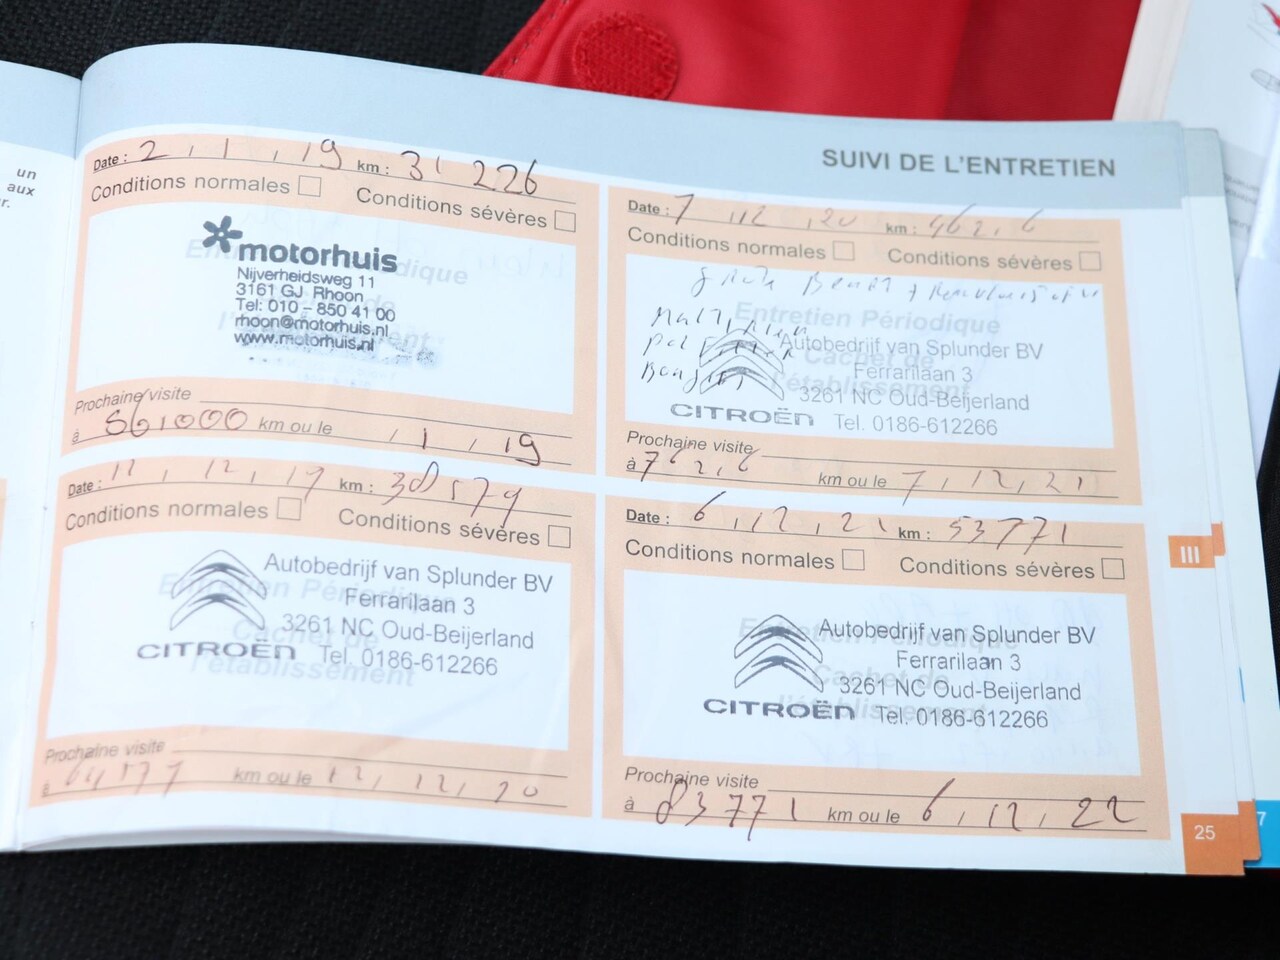 un
aux
r.
SUIVI DE L'ENTRETIEN
Date : 2 , 1 , 19 km : 31 226
Conditions normales
Conditions sévères
motorhuis
Nijverheidsweg 11
3161 GJ Rhoon
Tel: 010 – 850 41 00
rhoon@motorhuis.nl
www.motorhuis.nl
Prochaine visite
à 561000 km ou le , 1 , 19
Date : 7 , 12 , 20 km :
Conditions normales
Conditions sévères
Entretien Périodique
Cachet de
l'établissement
Autobedrijf van Splunder BV
Ferrarilaan 3
3261 NC Oud-Beijerland
CITROËN Tel. 0186-612266
Prochaine visite
à km ou le 7 , 12 , 21
Date : 12 , 12 , 19 km : 38579
Conditions normales
Conditions sévères
Entretien Périodique
Cachet de
l'établissement
Autobedrijf van Splunder BV
Ferrarilaan 3
3261 NC Oud-Beijerland
CITROËN Tel. 0186-612266
Prochaine visite
à km ou le 12 , 12 , 20
Date : 6 , 12 , 21 km : 53771
Conditions normales
Conditions sévères
Entretien Périodique
Cachet de
l'établissement
Autobedrijf van Splunder BV
Ferrarilaan 3
3261 NC Oud-Beijerland
CITROËN Tel. 0186-612266
Prochaine visite
à 83771 km ou le 6 , 12 , 22
III
25
7